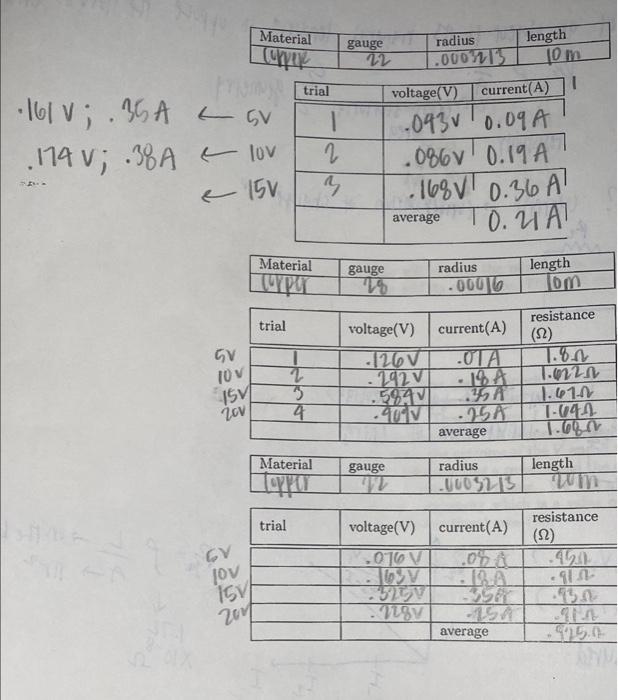 Material gauge radius length
Copper 22 .0003213 10m
trial voltage(V) current(A)
.161 V; .35A ← 5V 1 .043v 0.09A
.174 V; .38A ← 10V 2 .086V 0.19A
← 15V 3 .168V 0.36A
average 0.21A
Material gauge radius length
Copper 28 .00016 10m
trial voltage(V) current(A) resistance (Ω)
5V 1 .126V .07A 1.8Ω
10V 2 .292V .18A 1.622Ω
15V 3 .584V .35A 1.67Ω
20V 4 .409V .25A 1.64Ω
average 1.68Ω
Material gauge radius length
Copper 22 .0003213 20m
trial voltage(V) current(A) resistance (Ω)
5V .076V .08A .95Ω
10V .163V .18A .91Ω
15V .325V .35A .93Ω
20V .228V .25A .91Ω
average .925Ω